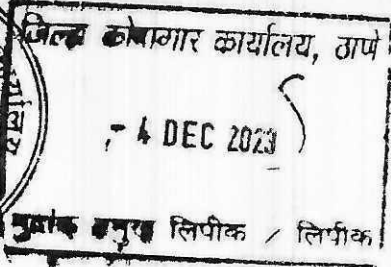 जिल्हा कोषागार कार्यालय, ठाणे
- 4 DEC 2023
मुद्रांक प्रमुख लिपीक / लिपीक